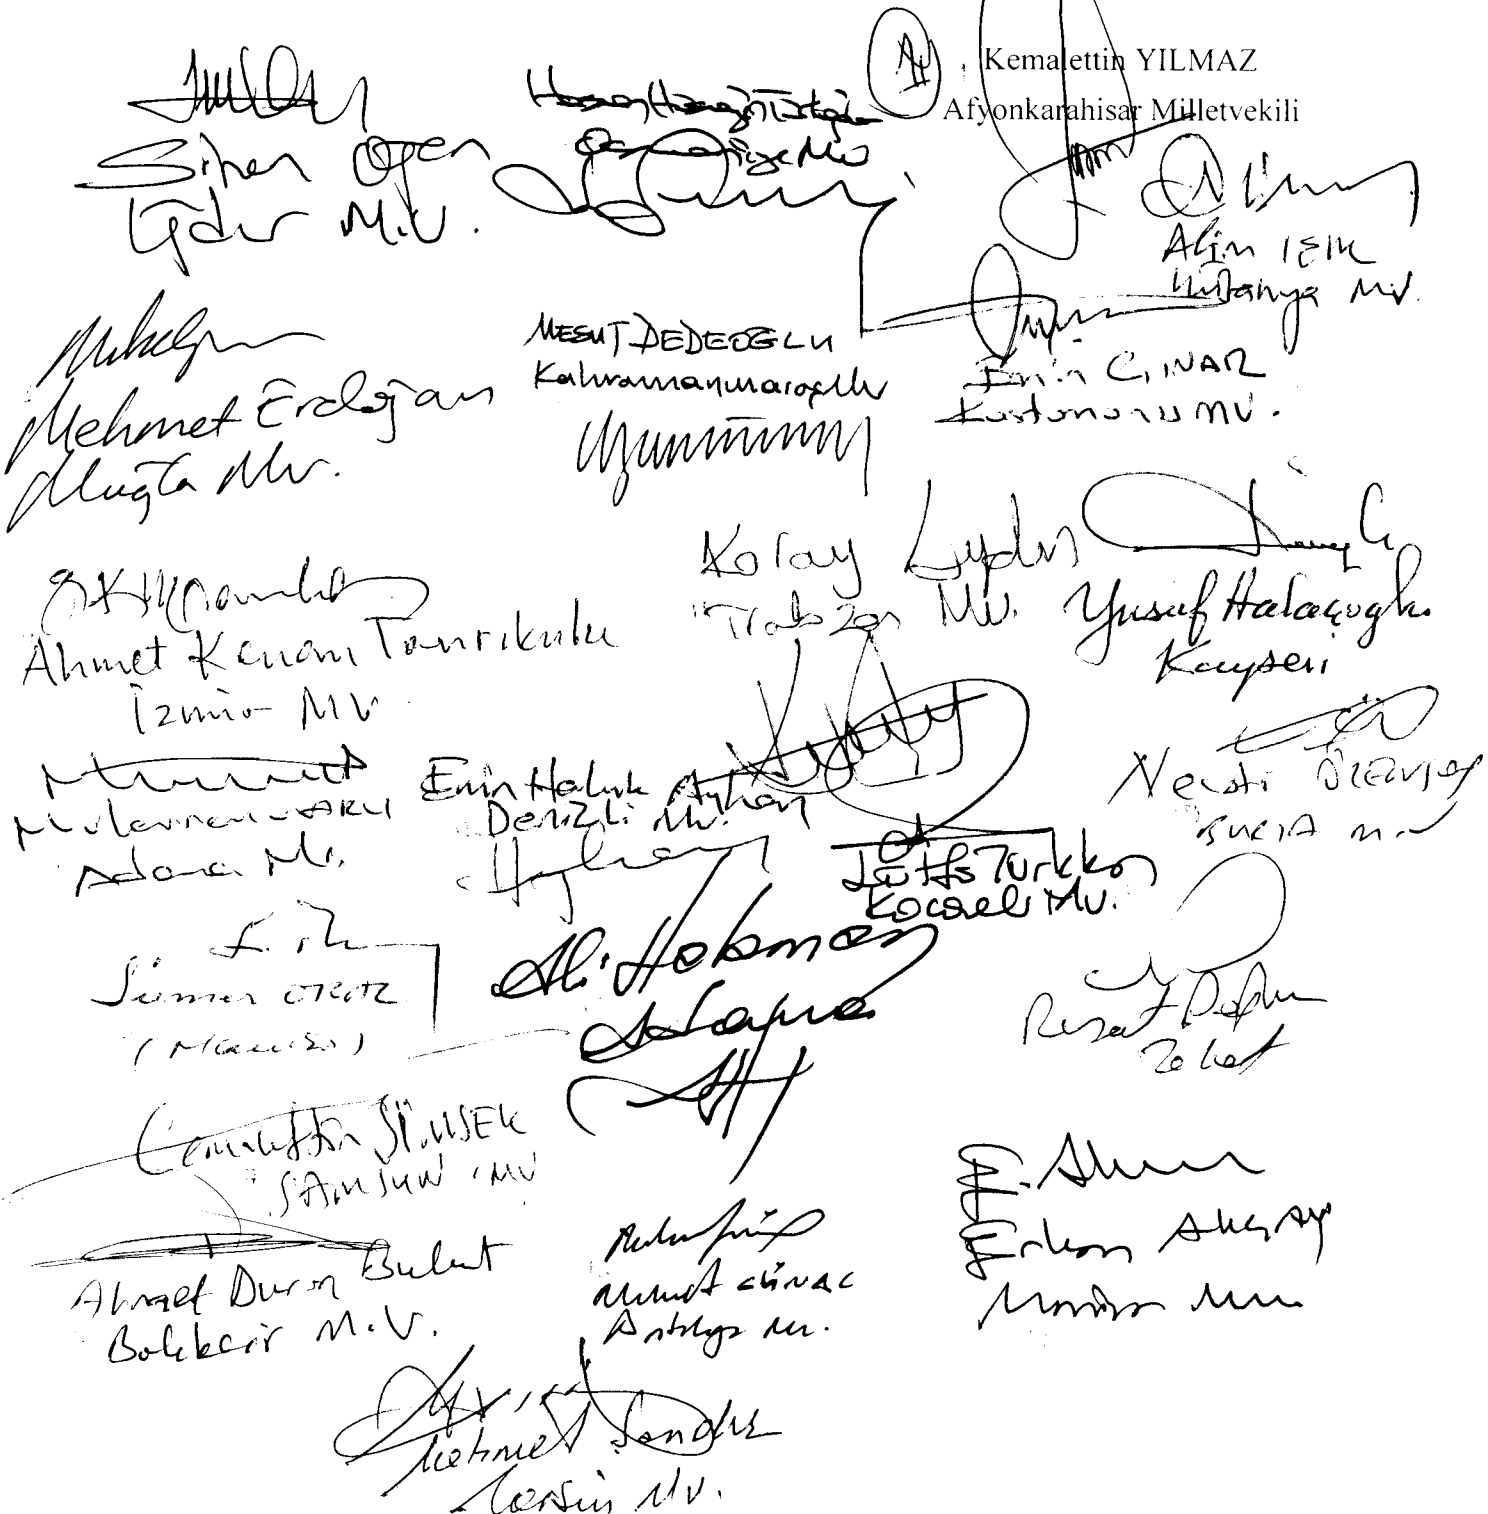 Kemalettin YILMAZ
Afyonkarahisar Milletvekili
Sinan Oğan
Iğdır M.V.
Hasan Hüseyin Türkoğlu
Osmaniye Mv
Alim IŞIK
Kütahya Mv.
Mehmet Erdoğan
Muğla Mv.
MESUT DEDEOĞLU
Kahramanmaraş Mv
Emin ÇINAR
Kastamonu MV.
Koray Aydın
Trabzon Mv.
Yusuf Halaçoğlu
Kayseri
Ahmet Kenan Tanrıkulu
İzmir MV
Muharrem VARLI
Adana Mv.
Emin Haluk Ayhan
Denizli Mv.
Lütfü Türkkan
Kocaeli Mv.
Necati ÖZENSOY
BURSA m.v
Sümer ORAL
(Manisa)
Ali Halaman
Adana
Reşat Doğru
Tokat
Cemalettin ŞİMŞEK
SAMSUN MV
E. Akçay
Erkan AKÇAY
Manisa Mv.
Ahmet Duran Bulut
Balıkesir M.V.
Mehmet GÜNAL
Antalya Mv.
Mehmet Şandır
Mersin Mv.